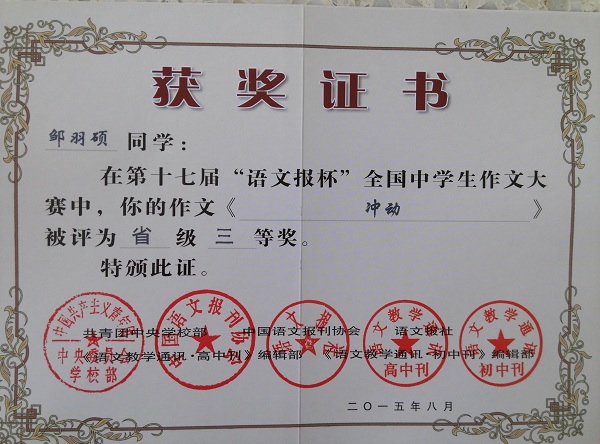 获奖证书
邹羽硕 同学：
在第十七届“语文报杯”全国中学生作文大
赛中，你的作文《 冲动 》
被评为 省 级 三 等奖。
特颁此证。
共青团中央学校部 中国语文报刊协会 语文报社
《语文教学通讯·高中刊》编辑部 《语文教学通讯·初中刊》编辑部
中国共产主义青年团
中央委员会
学校部
中国语文报刊协会
语文报社
语文教学通讯
高中刊
语文教学通讯
初中刊
二〇一五年八月